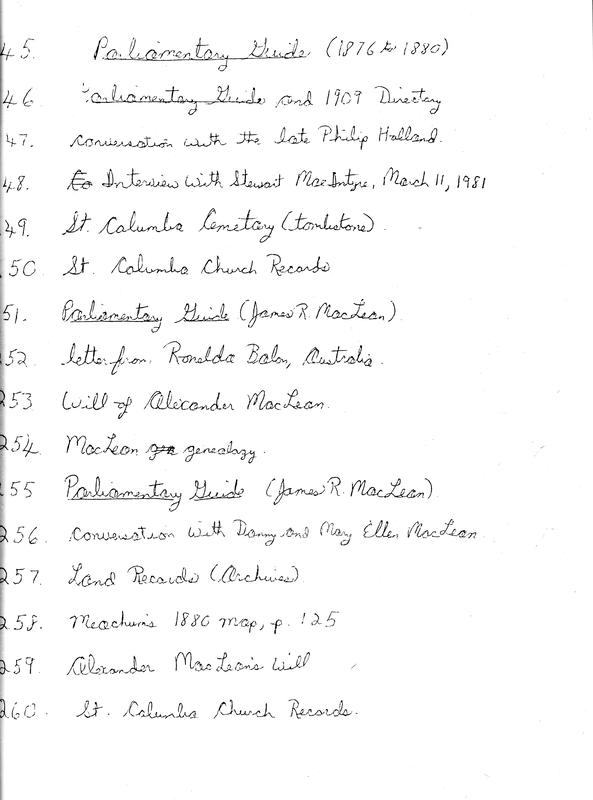 45. Parliamentary Guide (1876 to 1880)
46. Parliamentary Guide and 1909 Directory
47. conversation with the late Philip Holland.
48. Interview with Stewart MacIntyre, March 11, 1981
49. St. Columba Cemetary (tombstone)
50 St. Columba Church Records
51. Parliamentary Guide (James R. MacLean)
52. letter from, Ronelda Balon, Australia.
253 Will of Alexander MacLean.
254. MacLean genealogy.
255 Parliamentary Guide (James R. MacLean)
256. conversation with Danny and Mary Ellen MacLean
257. Land Records (Archives)
258. Meachum's 1880 map, p. 125
259. Alexander MacLean's Will
260. St. Columba Church Records.